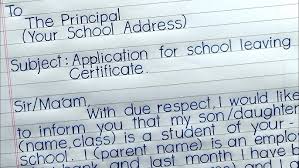 To
The Principal
(Your School Address)
Subject: Application for school leaving
Certificate.
Sir/Ma'am,
With due respect, I would like
to inform you that my son/daughter
(name, class) is a student of your
school. I (parent name) is an employ
and last month I have b